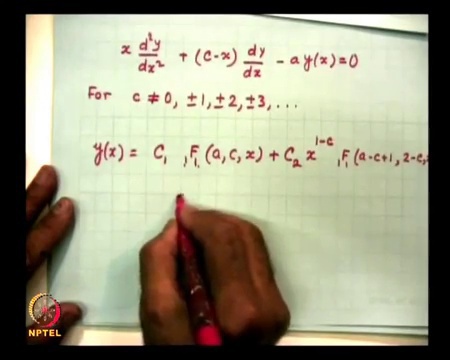 x d²y/dx² + (c-x) dy/dx - a y(x) = 0
For c ≠ 0, ±1, ±2, ±3, ...
y(x) = C₁ ₁F₁(a, c, x) + C₂ x^(1-c) ₁F₁(a-c+1, 2-c, x
NPTEL